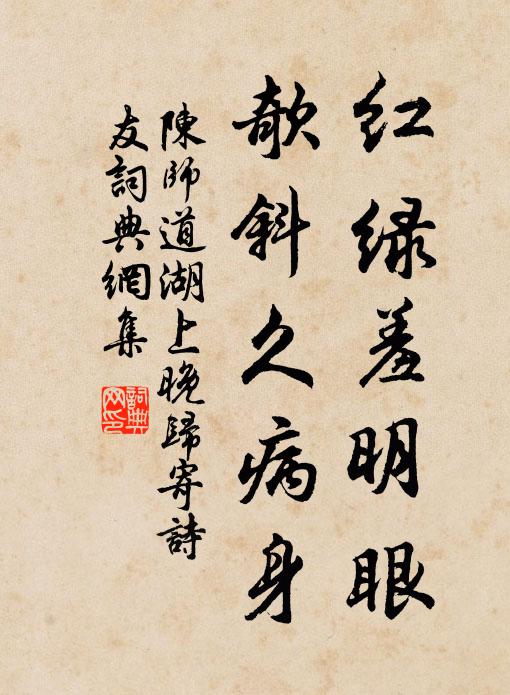 红绿羞明眼
欹斜久病身
陳師道湖上晚歸寄詩
友詞典網集
詞典
网印